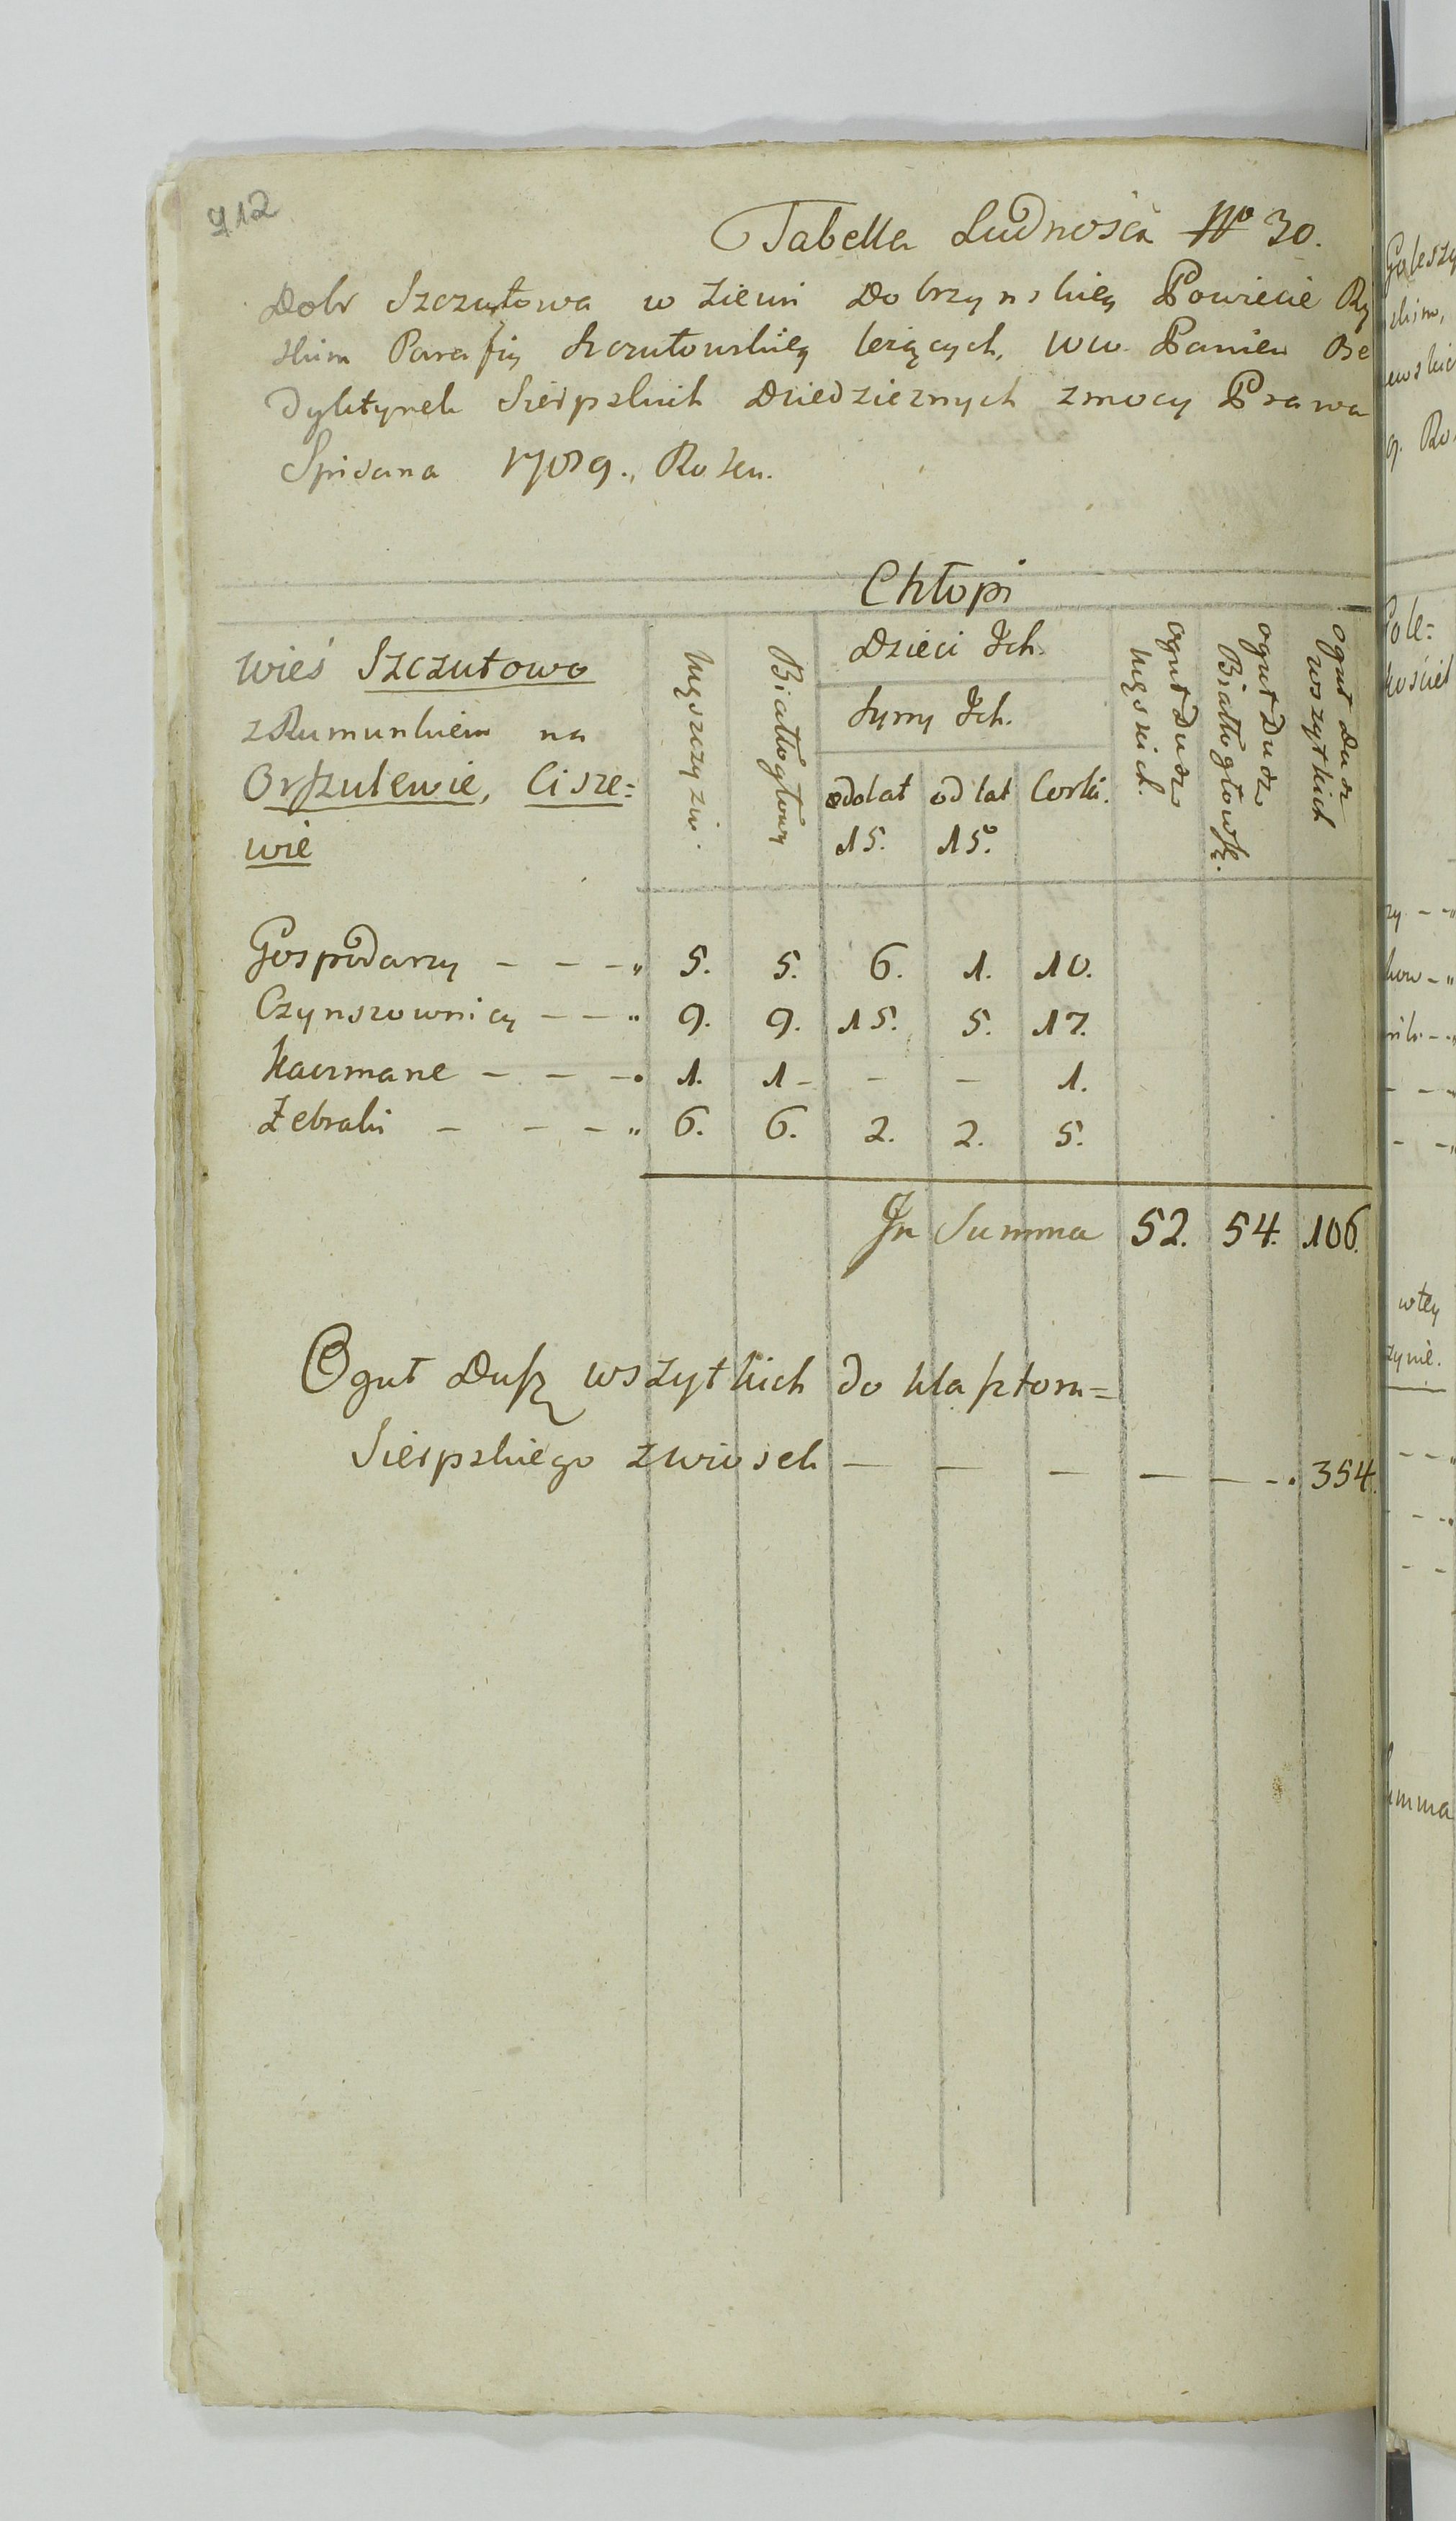 912
Tabella Ludnosca No 30.
Dobr Szczutowa w Ziemi Dobrzynskiey Powiecie Ry
skim Parafiy Szczutowskiey leżących, WW. Panien Be
dyktynek Sierpskich Dziedzicznych zmocy Prawa
Spisana 1789., Roku.
Chłopi
Wieś Szczutowo
z Rumunkiem na
Orszulewie, Cisze=
wie
Męszczyzn.
Białłogłowy
Dzieci Ich.
Syny Ich.
do lat 15.
od lat 15.
Corki.
Ogut Dusz Męskich.
Ogut Dusz Białłogłowsk.
Ogut Dusz wszytkich
Gospodarzy - - - „ 5. 5. 6. 1. 10.
Czynszownicy - - „ 9. 9. 15. 5. 17.
Karczmarze - - - . 1. 1 - - - 1.
Żebraki - - - „ 6. 6. 2. 2. 5.
In Summa 52. 54. 106.
Ogut Dusz wszytkich do klasztoru=
Sierpskiego zwiosek - - - - - - . 354.